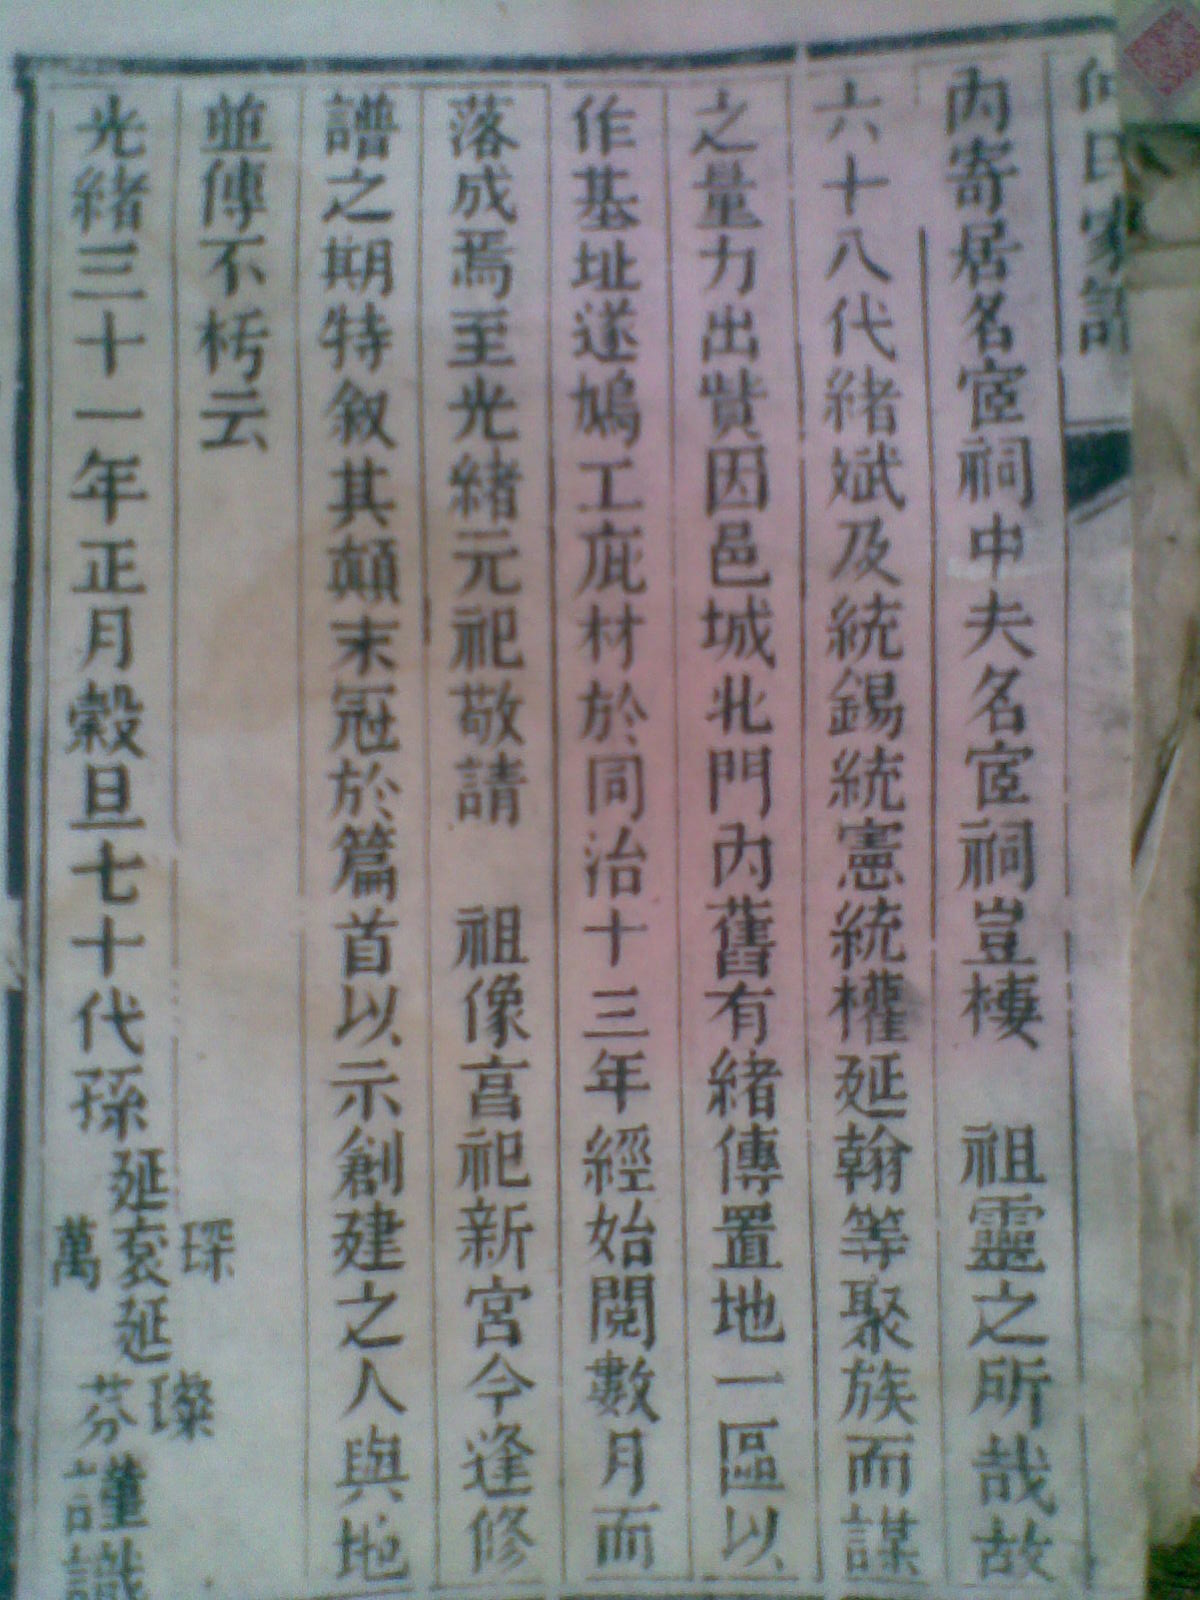 何氏家譜
內寄居名宦祠中夫名宦祠豈棲　祖靈之所哉故
六十八代緒斌及統錫統憲統權延翰等聚族而謀
之量力出貲因邑城北門內舊有緒傳置地一區以
作基址遂鳩工庀材於同治十三年經始閱數月而
落成焉至光緒元祀敬請　祖像亯祀新宮今逢修
譜之期特敘其顛末冠於篇首以示創建之人與地
並傳不朽云
光緒三十一年正月穀旦七十代孫延琛萬袤延璨芬謹識